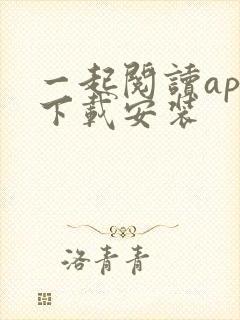 一起閱讀ap
下載安裝
洛青青